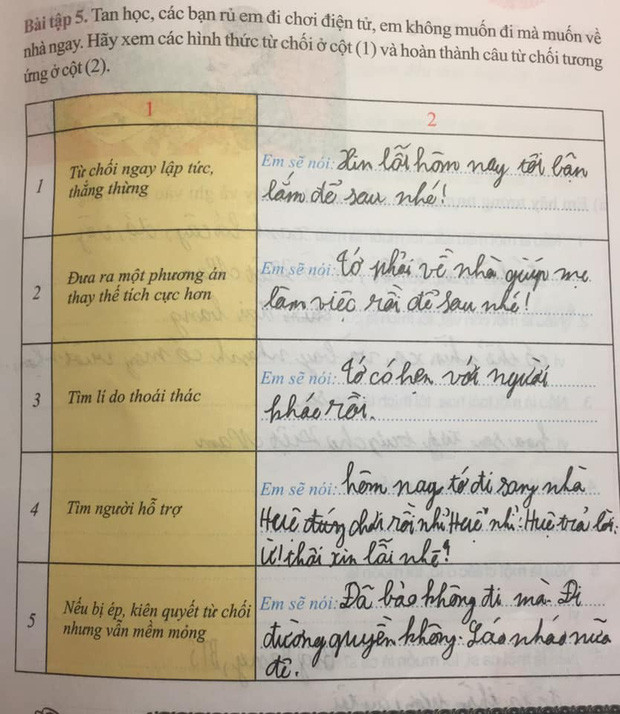 Bài tập 5. Tan học, các bạn rủ em đi chơi điện tử, em không muốn đi mà muốn về
nhà ngay. Hãy xem các hình thức từ chối ở cột (1) và hoàn thành câu từ chối tương
ứng ở cột (2).
1
2
1
Từ chối ngay lập tức,
thẳng thừng
Em sẽ nói: Xin lỗi hôm nay tôi bận
lắm để sau nhé!
2
Đưa ra một phương án
thay thế tích cực hơn
Em sẽ nói: tớ phải về nhà giúp mẹ
làm việc rồi để sau nhé!
3
Tìm lí do thoái thác
Em sẽ nói: Tớ có hẹn với người
khác rồi.
4
Tìm người hỗ trợ
Em sẽ nói: hôm nay tớ đi sang nhà
Huê đúng chơi rồi nhỉ Huê" nhỉ: Huê trả lời:
ừ! thôi xin lỗi nhé!
5
Nếu bị ép, kiên quyết từ chối
nhưng vẫn mềm mỏng
Em sẽ nói: Đã bảo không đi mà. Đi
đường quyền không. Láo nháo nữa
đi.